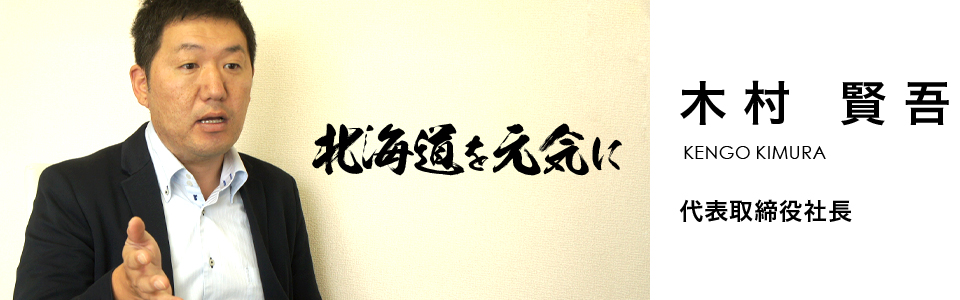 北海道を元気に
木村 賢吾
KENGO KIMURA
代表取締役社長